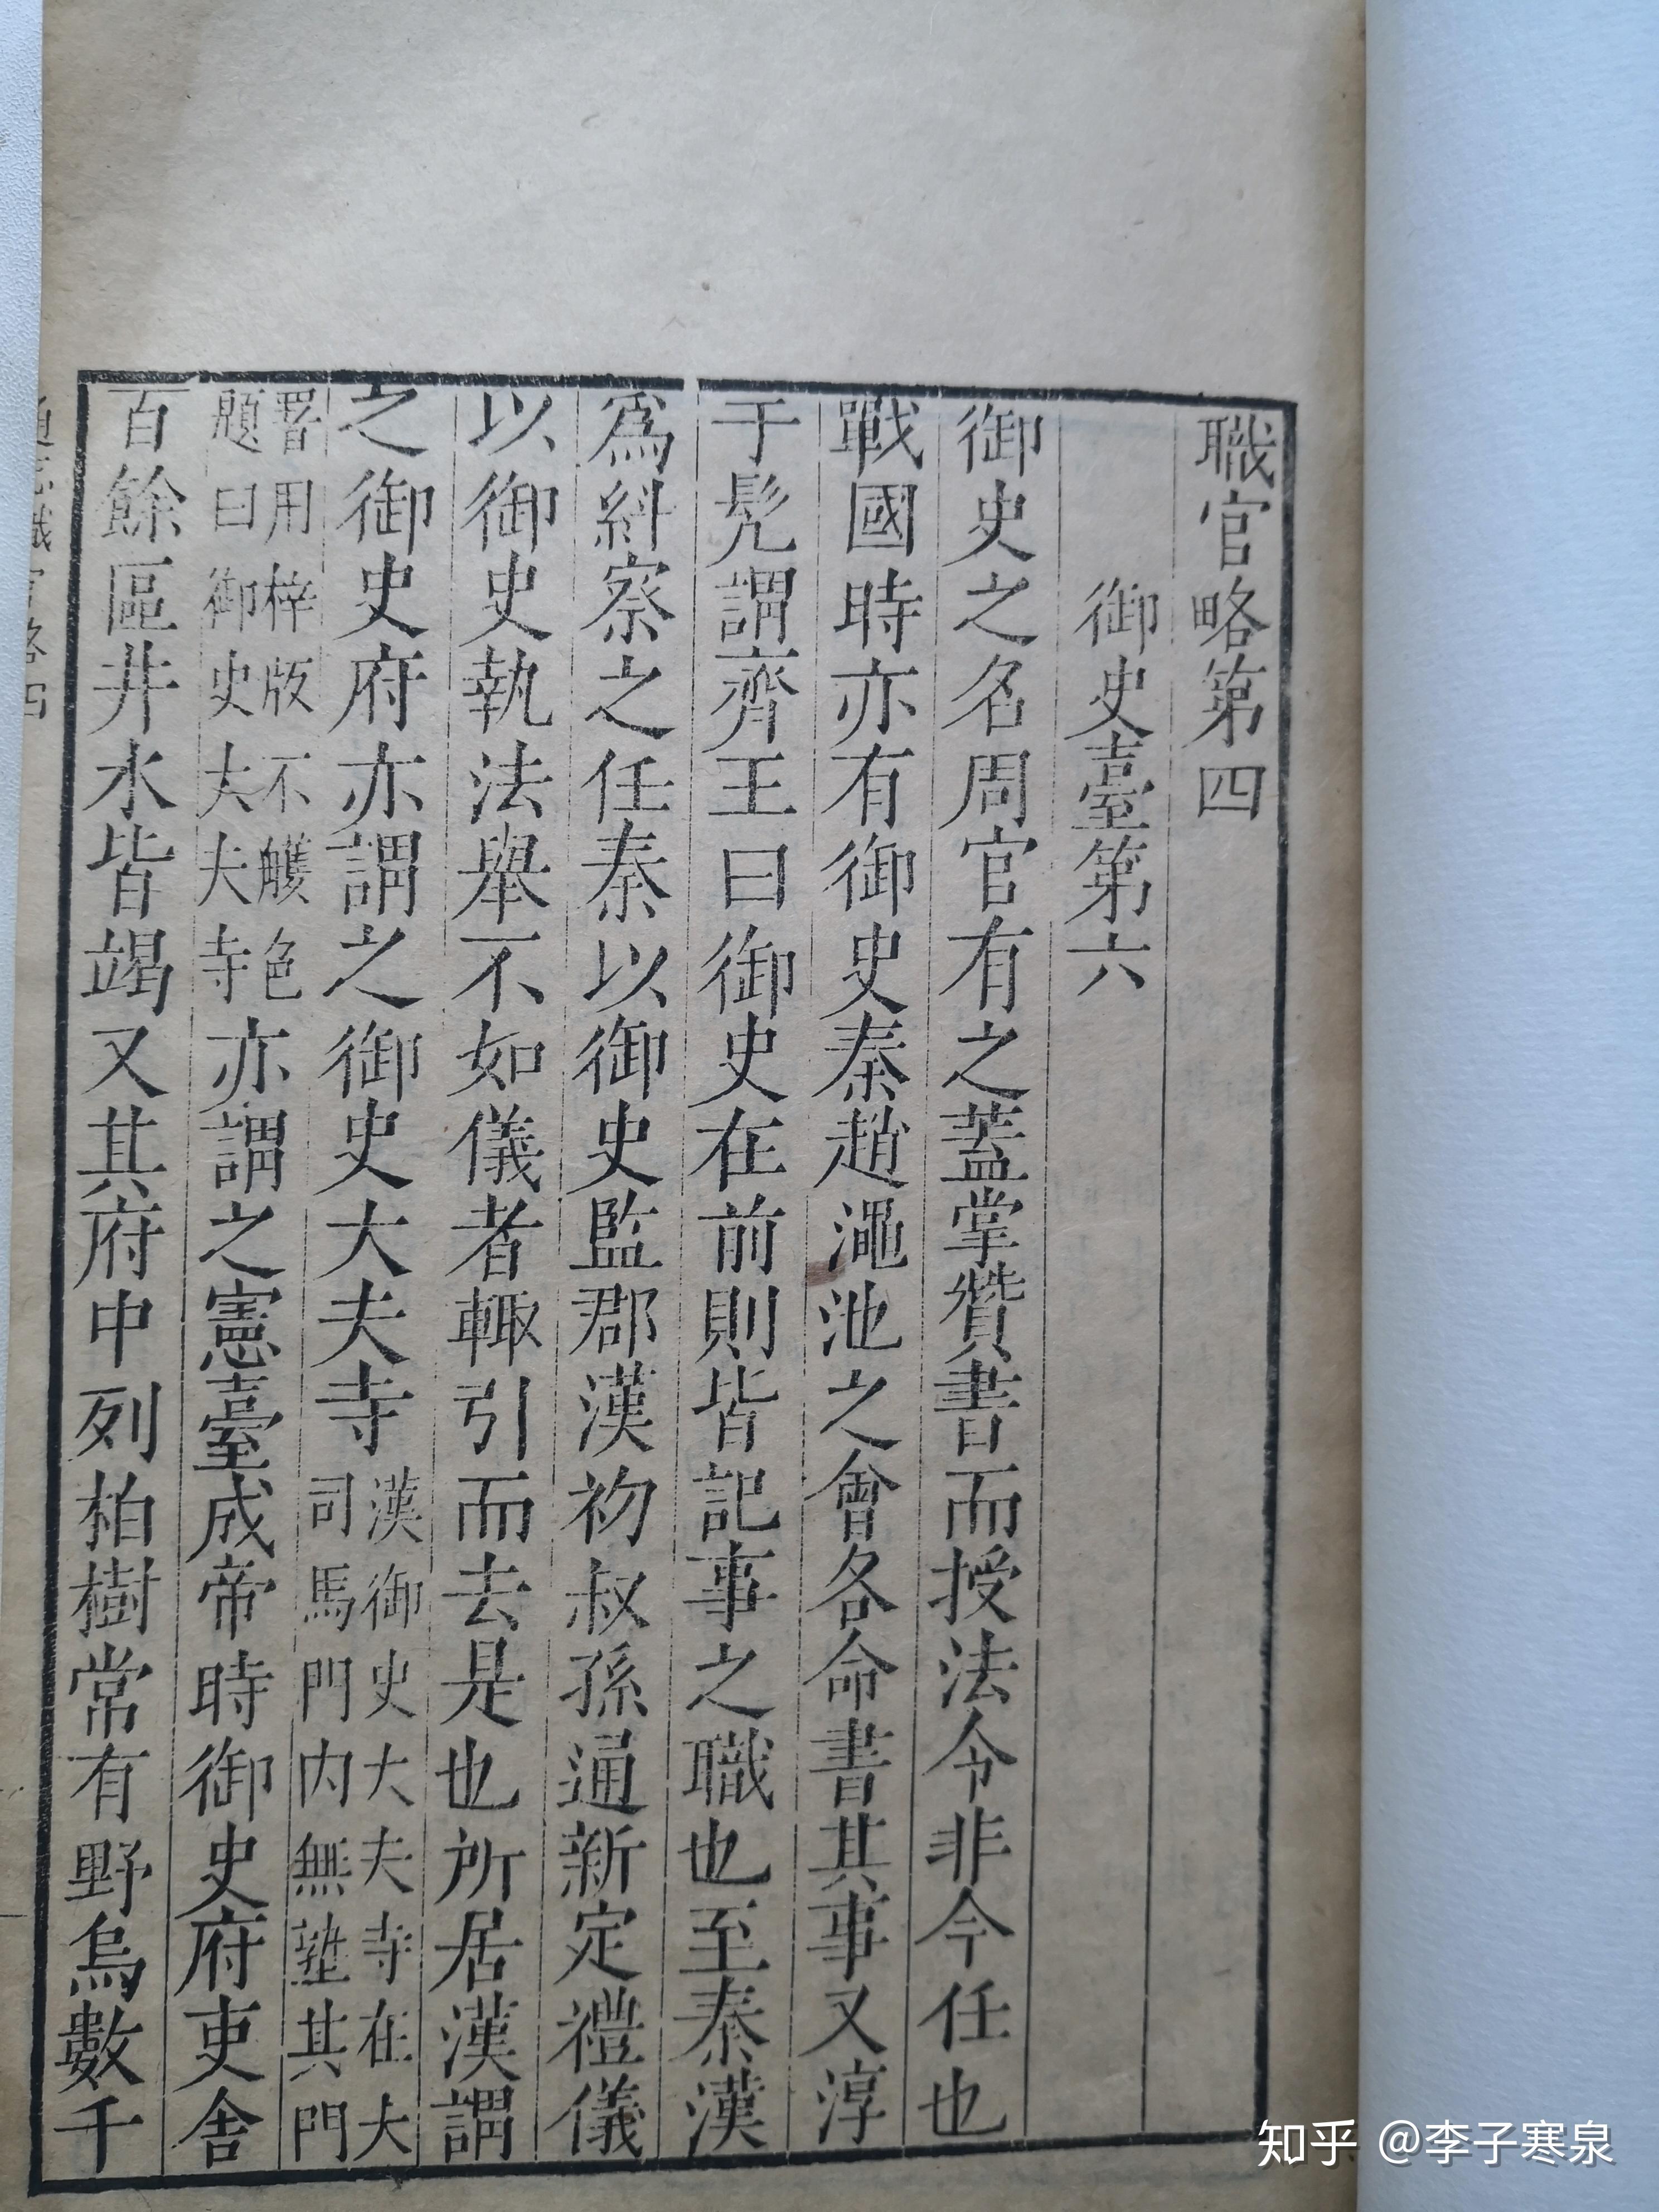 職官略第四
御史臺第六
御史之名周官有之蓋掌贊書而授法令非今任也
戰國時亦有御史秦趙澠池之會各命書其事又淳
于髠謂齊王曰御史在前則皆記事之職也至秦漢
爲糾察之任秦以御史監郡漢初叔孫通新定禮儀
以御史執法舉不如儀者輙引而去是也所居漢謂
之御史府亦謂之御史大夫寺漢御史大夫寺在大司馬門内無塾其門
署用梓版不雘色題曰御史大夫寺亦謂之憲臺成帝時御史府吏舍
百餘區井水皆竭又其府中列柏樹常有野烏數千
職官略四
知乎 @李子寒泉